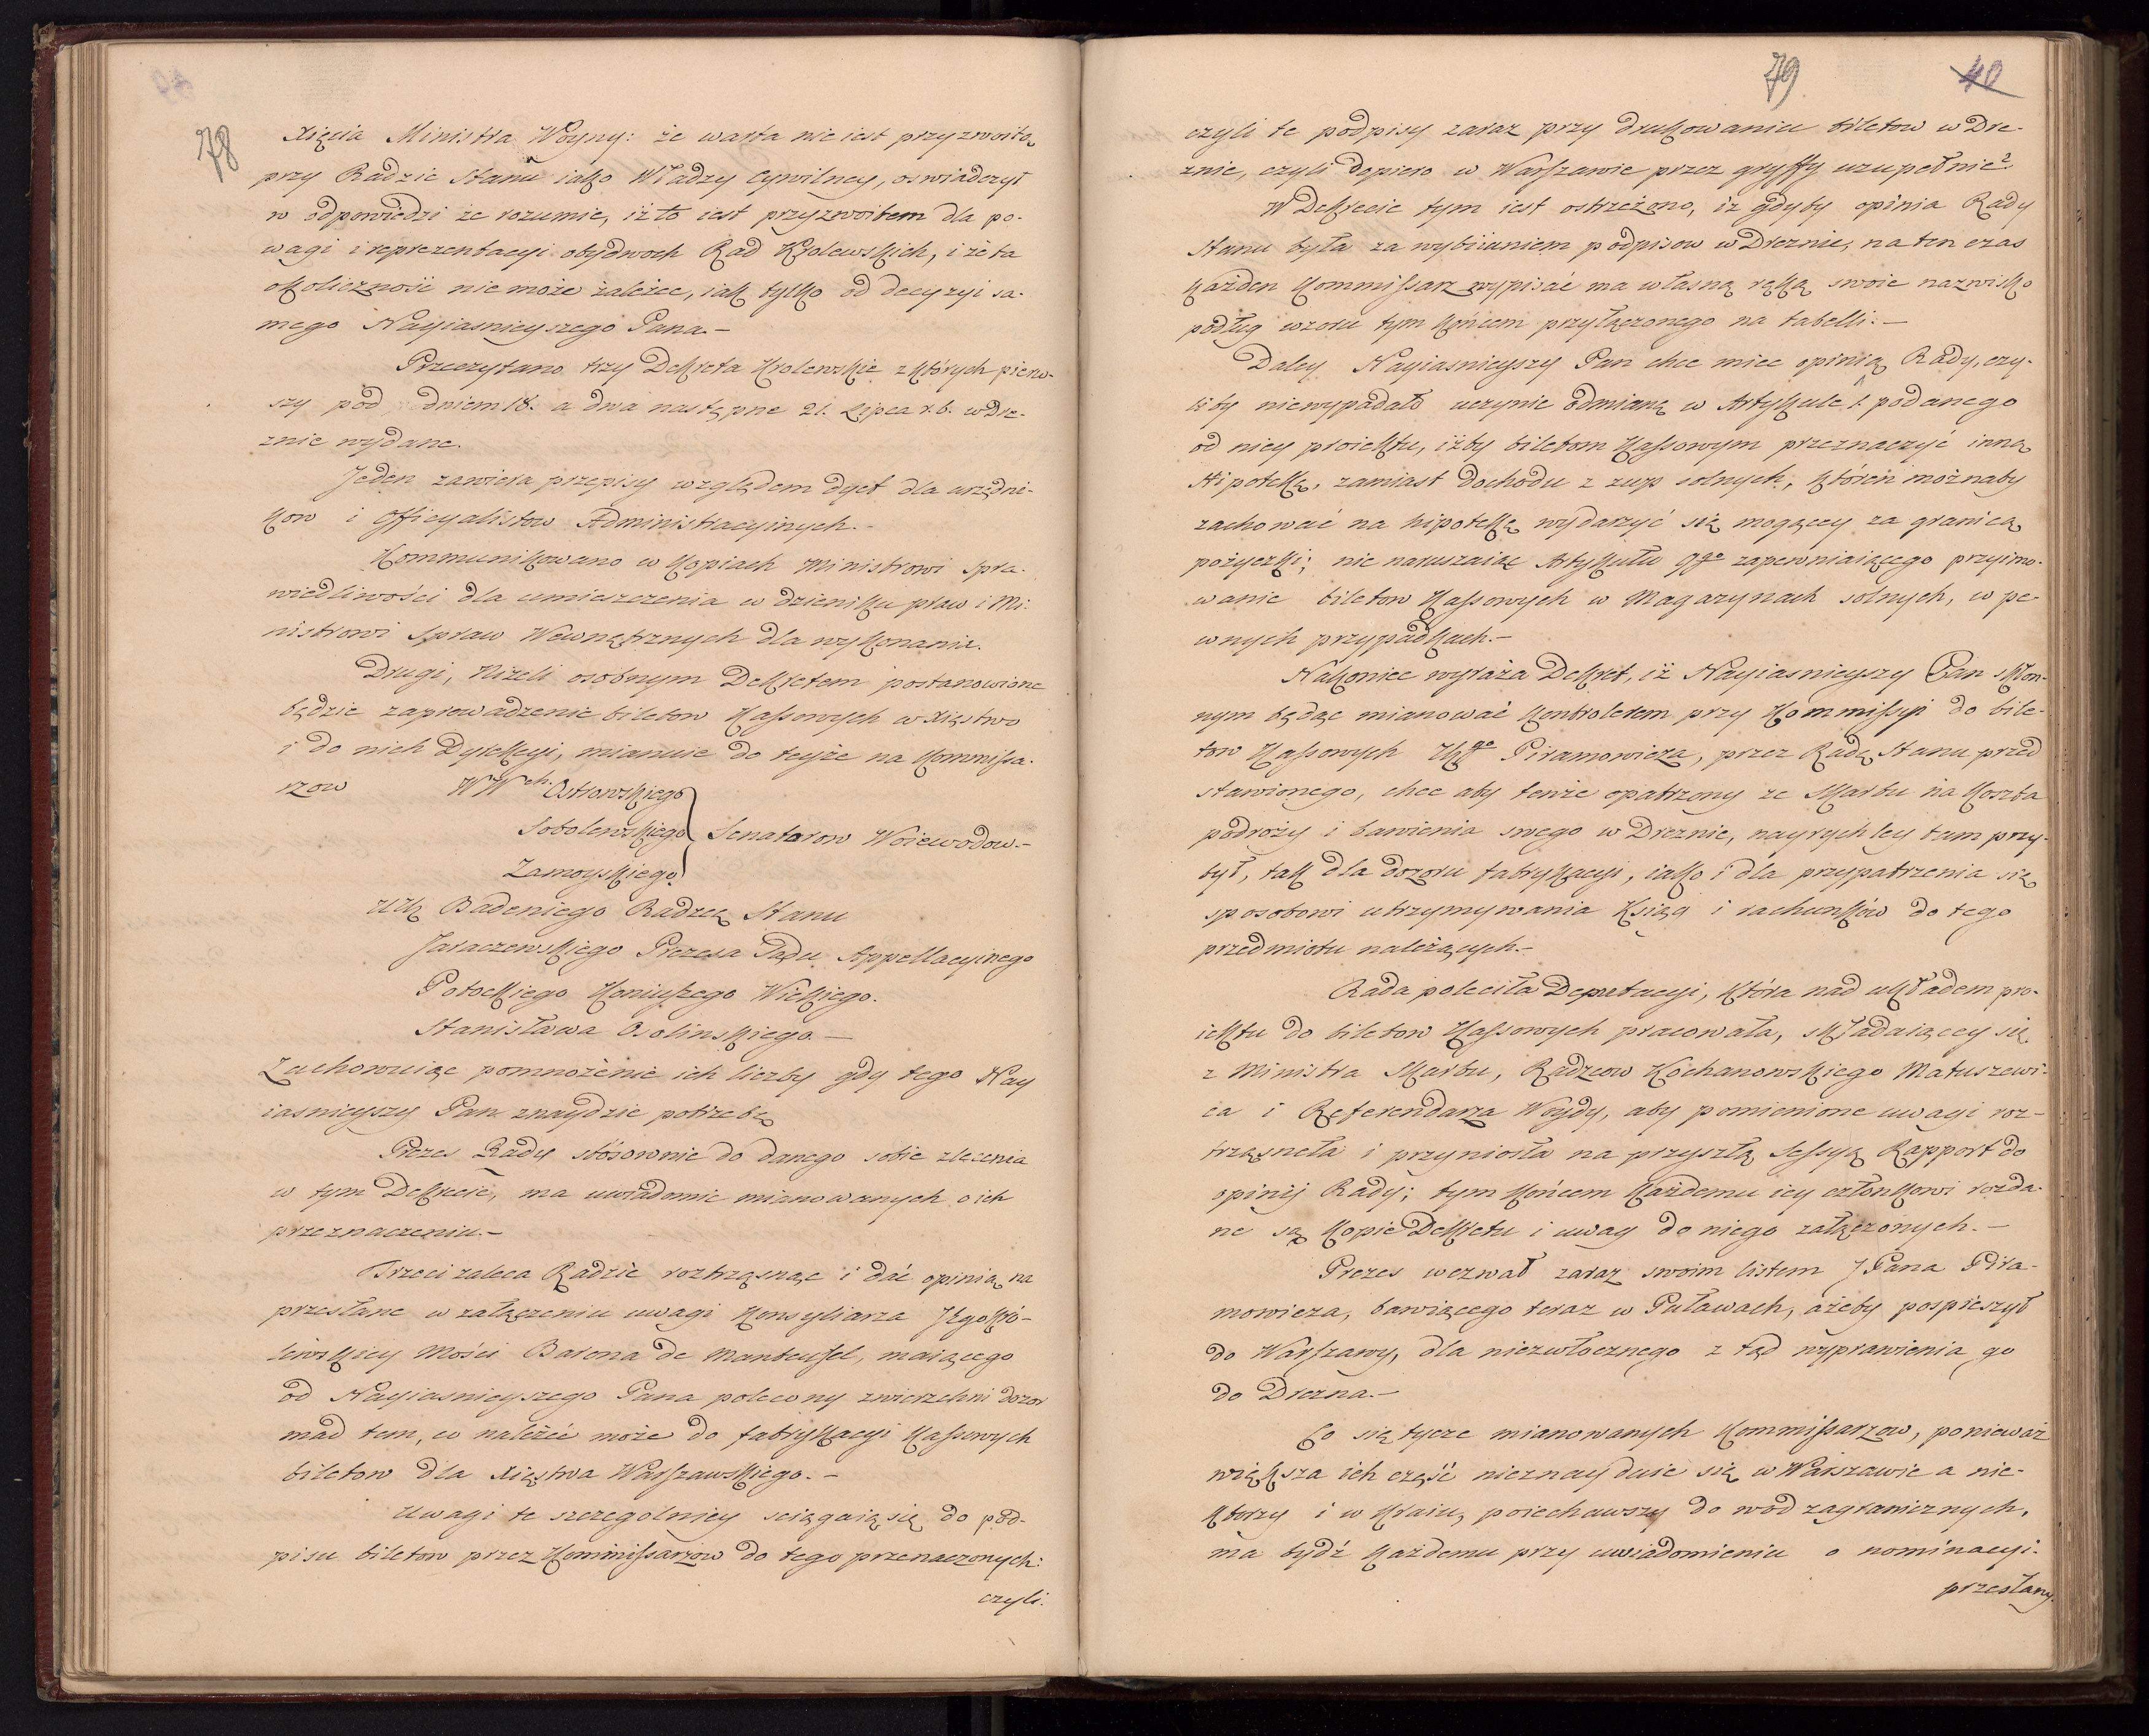 78
Xięcia Ministra Woyny: że warta nie iest przyzwoitą
przy Radzie Stanu iako Władzy Cywilney, oswiadczył
w odpowiedzi że rozumie, iż to iest przyzwoitem dla po-
wagi i reprezentacyi obydwoch Rad Krolewskich, i że ta
okoliczność nie może zależec, iak tylko od decyzyi sa-
mego Nayiasnieyszego Pana.-
Przeczytano trzy Dekreta Krolewskie z których pierw-
szy pod dniem 18. a dwa następne 21. Lipca r. b. w Dre-
znie wydane.
Jeden zawiera przepisy względem dyet dla urzędni-
kow i Officyalistow Administracyinych.-
Kommunikowano w kopiach Ministrowi Spra-
wiedliwości dla umieszczenia w dzieniku praw i Mi-
nistrowi Spraw Wewnętrznych dla wykonania.
Drugi, Niżeli osobnym Dekretem postanowione
będzie zaprowadzenie biletow kassowych w Xięstwo
i do nich Dyrekcyi, mianuie do teyże na Kommissa-
rzow WWch. Ostrowskiego
Sobolewskiego Senatorow Woiewodow.-
Zamoyskiego
Badeniego Radzcę Stanu
Jaraczewskiego Prezesa Sądu Appellacyinego
Potockiego Koniuszego Wielkiego.
Stanisława Osolinskiego.-
Zachowuiąc pomnożenie ich liczby gdy tego Nay
iasnieyszy Pan znaydzie potrzebę
Prezes Rady stósownie do danego sobie zlecenia
w tym Dekrecie, ma uwiadomic mianowanych o ich
przeznaczeniu.-
Trzeci zaleca Radzie roztrząsnąc i dać opinią na
przesłane w załączeniu uwagi Konsyliarza Jego Kró-
lewskiey Mości Barona de Manteufel, maiącego
od Nayiasnieyszego Pana polecony zwierzchni dozor
nad tem, co należéć może do fabrykacyi kassowych
biletow dla Xięstwa Warszawskiego.-
Uwagi te szczegolniey sciągaią się do pod-
pisu biletow przez Kommissarzow do tego przenaczonych:
czyli.
79 40
czyli te podpisy zaraz przy drukowaniu biletow w Dre-
znie, czyli dopiero w Warszawie przez gryffy uzupełnić?
W Dekrecie tym iest ostrzeżono, iż gdyby opinia Rady
Stanu była za wybiianiem podpisow w Dreznie, na ten czas
każden Kommissarz wypisać ma własną ręką swoie nazwisko
podług wzoru tym końcem przyłączonego na tabelli.-
Daley Nayiasnieyszy Pan chce miec opinią Rady, czy-
liby niewypadało uczynic odmianę w Artykule 1. podanego
od niey proiektu, iżby biletom kassowym przeznaczyć inną
Hipotekę, zamiast dochodu z zup solnych, któreń możnaby
zachować na hipotekę wydarzyć się mogącey za granicą
pożyczki; nie naruszaiąc Artykułu 9go zapewniaiącego przyimo-
wanie biletow kassowych w Magazynach solnych, w pe-
wnych przypadkach.-
Nakoniec wyraża Dekret, iż Nayiasnieyszy Pan skłon-
nym będąc mianować Kontrolerem przy Kommissyi do bile-
tow kassowych Piramowicza, przez Radę Stanu przed
stawionego, chce aby tenże opatrzony ze Skarbu na koszta
podroży i bawienia swego w Dreznie, nayrychley tam przy-
był, tak dla dozoru fabrykacyi, iako i dla przypatrzenia się
sposobowi utrzymywania Ksiąg i rachunków do tego
przedmiotu należących.-
Rada poleciła Deputacyi, która nad układem pro-
iektu do biletow kassowych pracowała, składaiącey się
z Ministra Skarbu, Radzcow Kochanowskiego Matuszewi-
ca i Referendarza Woydy, aby pomienione uwagi roz-
trząsneła i przyniosła na przyszłą Sessyą Rapport do
opinij Rady; tym końcem każdemu iey członkowi rozda-
ne są kopie Dekretu i uwag do niego załączonych.-
Prezes wezwał zaraz swoim listem JPana Pira-
mowicza, bawiącego teraz w Puławach, ażeby pospieszył
do Warszawy, dla niezwłocznego z tąd wyprawienia go
do Drezna.-
Co się tycze mianowanych Kommissarzow, ponieważ
większa ich część nieznayduie się w Warszawie a nie-
ktorzy i w Kraiu, poiechawszy do wod zagranicznych,
ma bydź każdemu przy uwiadomieniu o nominacyi-
przesłany.